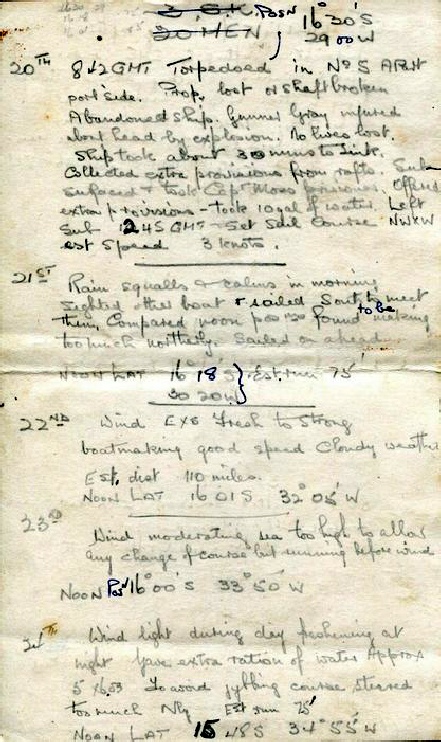 3 G.K. Posn 16°30'S
30 MEN 29 00 W
20TH 842 GMT Torpedoed in No 5 AP&H
port side. Prop. lost or shaft broken
Abandoned ship. Gunner Gray injured
about head by explosion. No lives lost.
Ship took about 30 mins to sink.
Collected extra provisions from rafts. Sub
surfaced & took Capt Moss prisoner. Offered
extra provisions - took 10 gal of water. Left
Sub 1245 GMT - Set Sail Course NWXW
est speed 3 knots.
21ST Rain squalls & calms in morning
Sighted other boat & sailed South to meet
them. Compared noon posns found to be making
too much northerly. Sailed on ahead.
NOON LAT 16 18 S Est. run 75'
30 20 W
22ND Wind EXS Fresh to Strong
boat making good speed Cloudy weather
Est. dist 110 miles.
NOON LAT 16 01 S 32° 05' W
23D Wind moderating sea too high to allow
any change of course but running before wind
NOON Posn 16°00'S 33° 50' W
24TH Wind light during day freshening at
night Gave extra ration of water Approx
5 To avoid gybing course steered
too much Nly Est run 75'
NOON LAT 15 48 S 34° 55' W